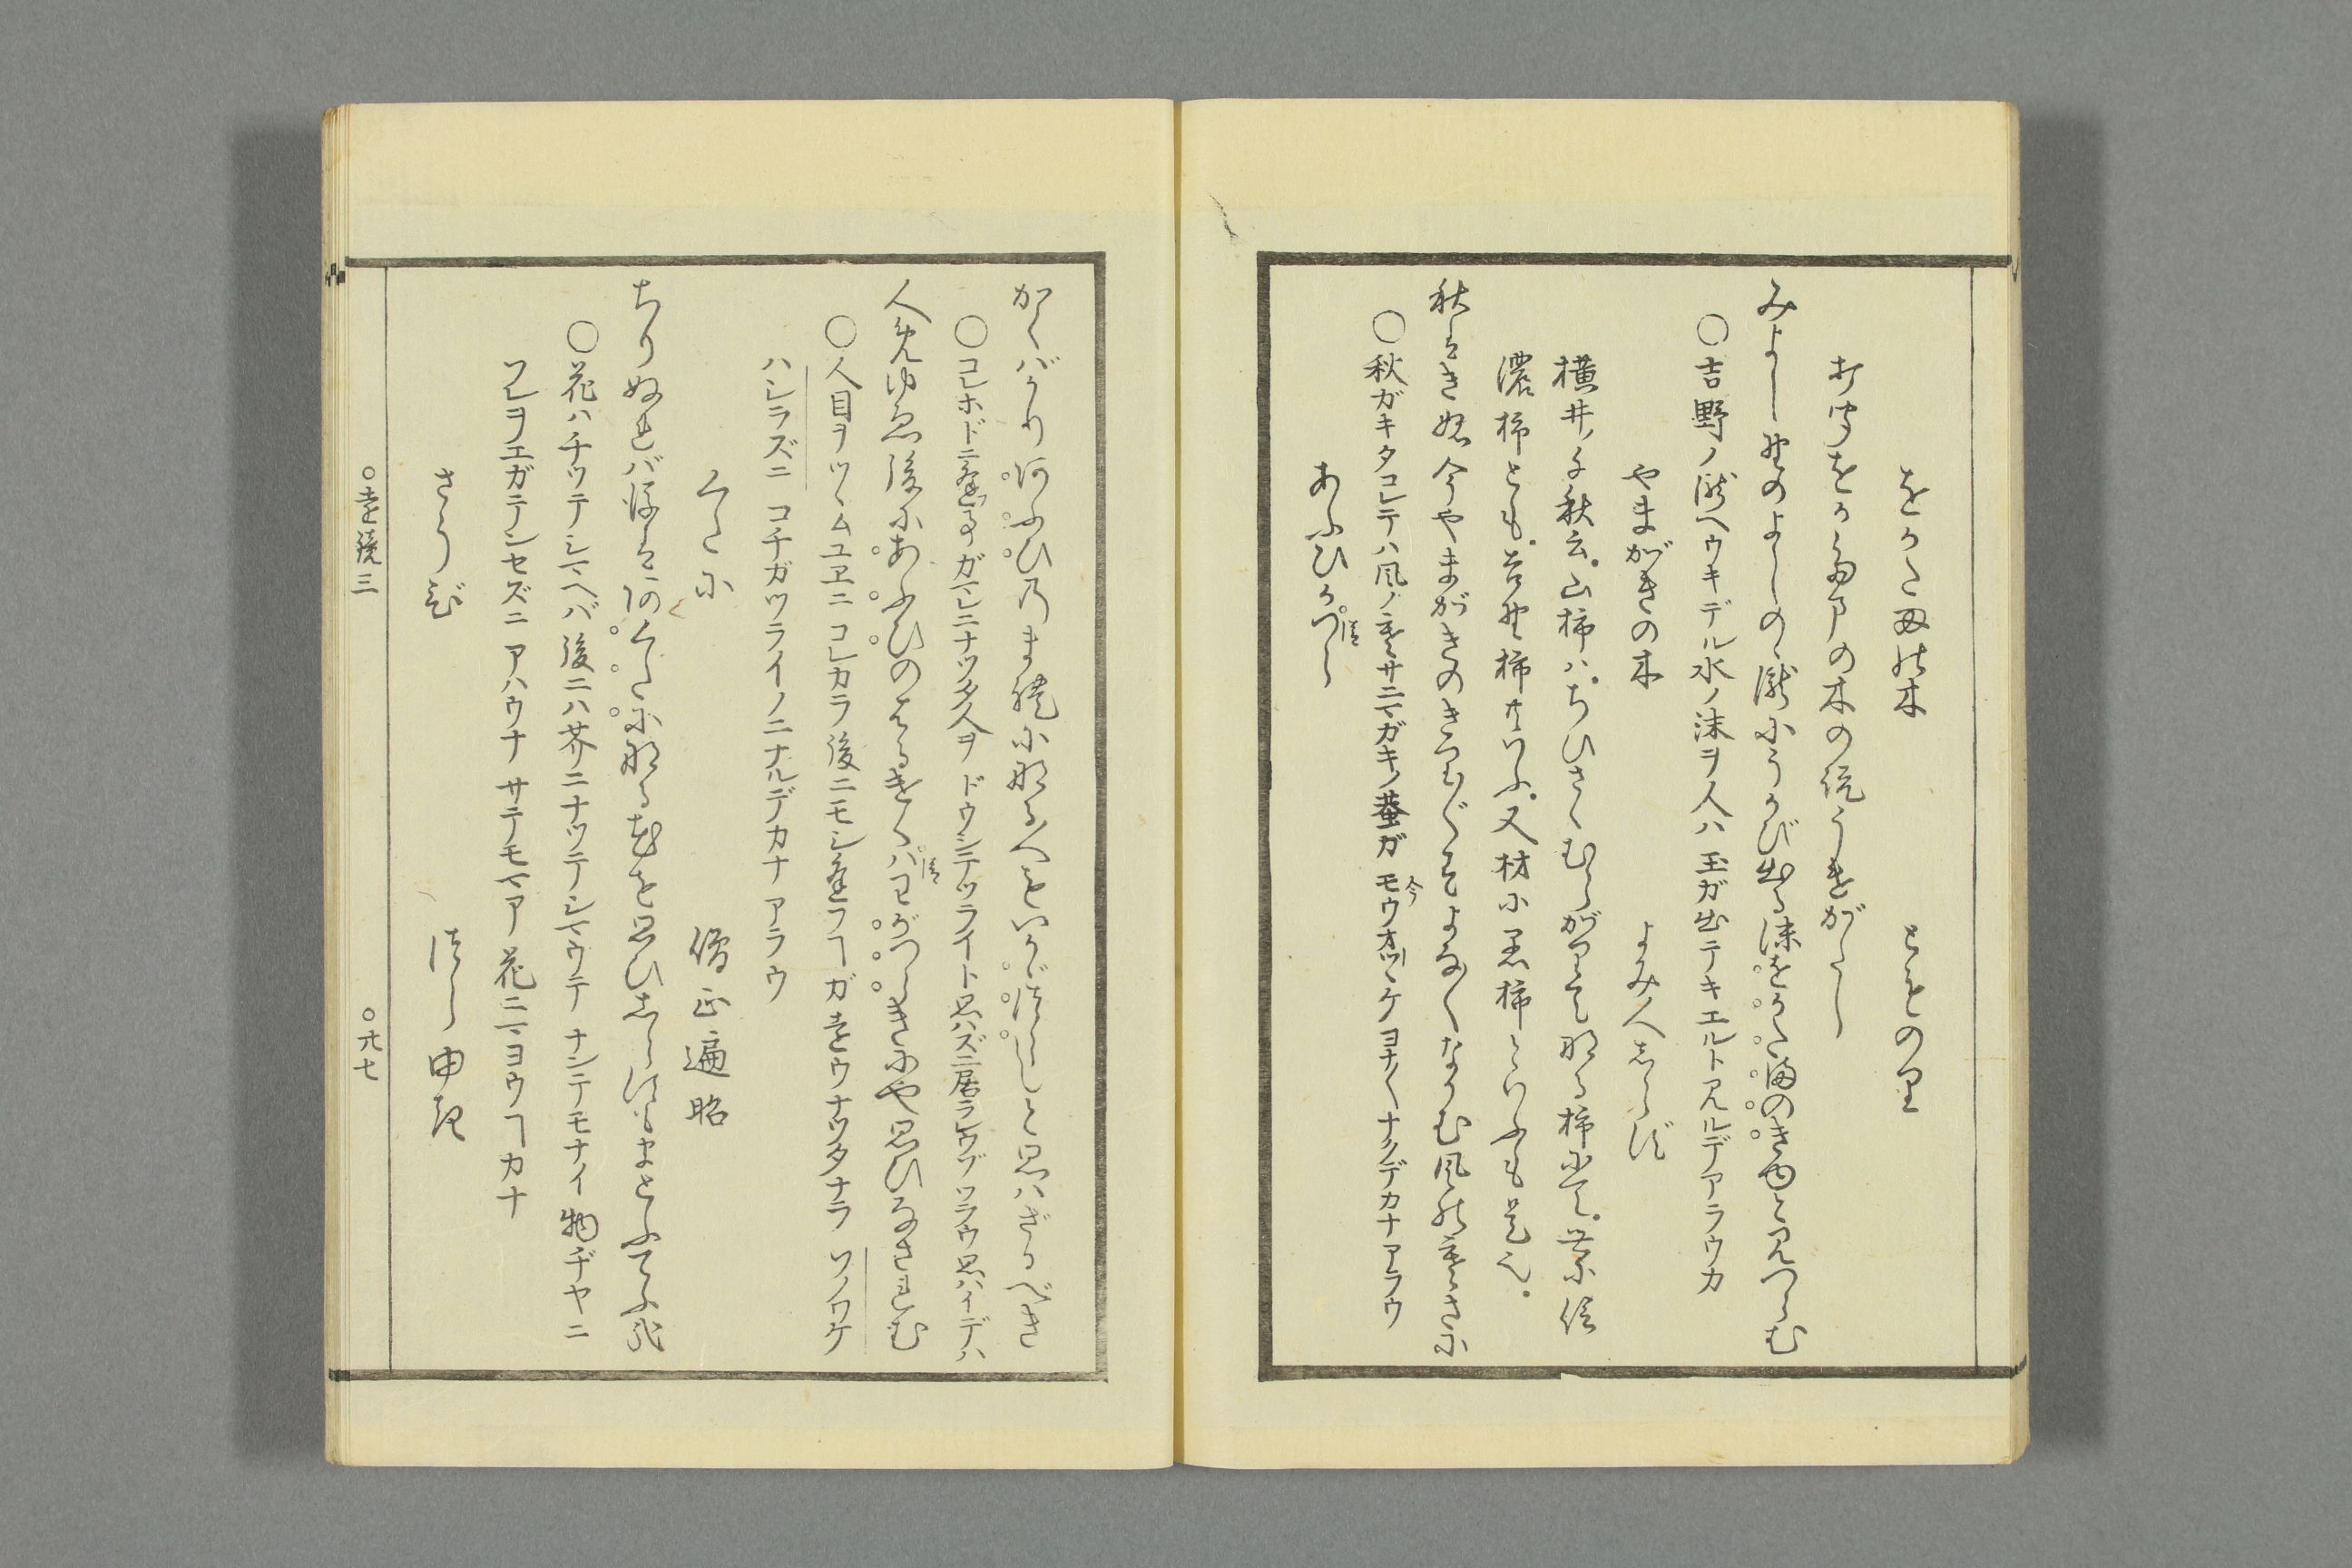 をがたまの木　とものり
打聞をがたまの木の説うけがたし
みよしのゝよしのゝ瀧にうかび出る沫をかたまのきゆと見つらむ
○吉野ノ瀧ヘウキデル水ノ沫ヲ人ハ 玉ガ出テキエルト見ルデアラウカ
やまがきの木　よみ人しらず
横井ノ千秋云。山柿ハ。ちひさくむらがりて なる柿にて。世に信
濃柿とも。吉野柿ともいふ。又材に黒柿といふも是也。
秋はきぬ今やまがきのきり〴〵すよな〳〵なかむ風の寒さに
○秋ガキタコレテハ風ノ寒サニマガキノ蛬ガ モウ今オツヽケヨナ〳〵ナクデカナアラウ
あふひかつら
かくばかりあふひのまれになる人をいかゞつらしと思はざるべき
○コレホドニ逢事ガマレニナツタ人ヲ ドウシテツライト思ハズニ居ラレウゾ ツラウ思ハイデハ
人めゆゑ後にあふひのはるけくはわがつらきにや思ひなされむ
○人目ヲツヽムユヱニ コレカラ後ニモシ逢フヿガ遠ウナツタナラ ソノワケ
ハシラズニ コチガツライノニナルデカナ アラウ
くたに　僧正遍昭
ちりぬれば後はあくたになる花を思ひしらずもまどふてふ哉
○花ハチツテシマヘバ 後ニハ芥ニナツテシマウテ ナンデモナイ物ヂヤニ
ソレヲエガテンセズニ アハウナ サテモマア 花ニマヨウヿカナ
さうび　つらゆき
○遠鏡三　○卅七